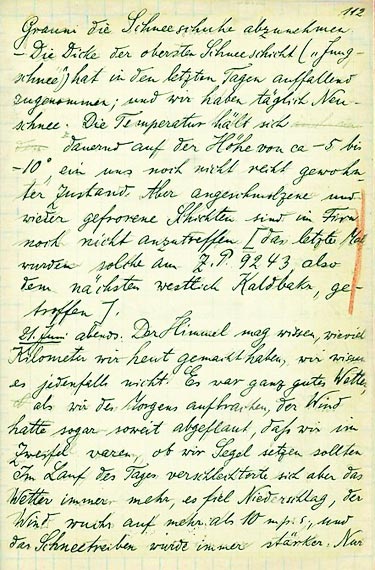 112
Grauni die Schneeschuhe abzunehmen.
– Die Dicke der obersten Schneeschicht („Jung-
schnee“) hat in den letzten Tagen auffallend
zugenommen; und wir haben täglich Neu-
schnee. Die Temperatur hält sich
dauernd auf der Höhe von ca –5 bis
–10°, ein uns noch nicht recht gewohn-
ter Zustand. Aber angeschmolzene und
wieder gefrorene Schichten sind im Firn
noch nicht anzutreffen [das letzte Mal
wurden solche am Z.P. 9243, also
dem nächsten westlich Kaldbakr, ge-
troffen].
21. Juni abends. Der Himmel mag wissen, wieviel
Kilometer wir heut gemacht haben, wir wissen
es jedenfalls nicht. Es war ganz gutes Wetter,
als wir des Morgens aufbrachen, der Wind
hatte sogar soweit abgeflaut, daß wir im
Zweifel waren, ob wir Segel setzen sollten
Im Lauf des Tages verschlechterte sich aber das
Wetter immer mehr, es fiel Niederschlag, der
Wind wuchs auf mehr als 10 m.p.s., und
das Schneetreiben wurde immer stärker. Nur